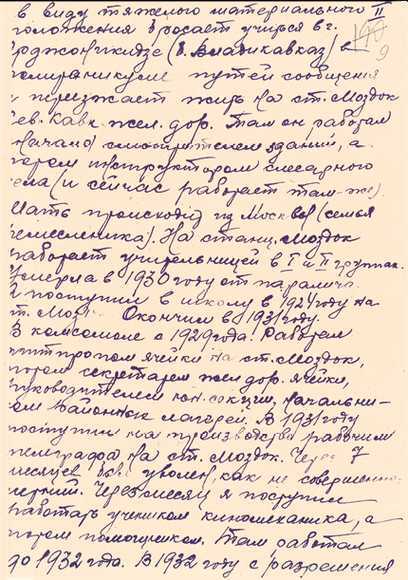 в виду тяжелого материального II
положения бросает учиться в г.
Орджоникидзе (б. Владикавказ) в
путей сообщения
и переезжает жить на ст. Моздок
Сев. Кавк. жел. дор. Там он работал
сначала смотрителем зданий, а
потом инструктором слесарного
дела (и сейчас работает там-же)
Мать происходит из Москвы (семья
ремесленника). На станц. Моздок
работает учительницей в I и II группах.
Умерла в 1930 году от паралича.
Я поступил в школу в 1924 году на
ст. Моздок. Окончил в 1931 году.
В комсомоле с 1929 года. Работал
ячейки на ст. Моздок,
потом секретарем жел. дор. ячейки,
руководителем юн. секции, начальни-
ком районных лагерей. В 1931 году
поступил на производство рабочим
телеграфа на ст. Моздок. Через 7
месяцев был уволен, как не совершенно-
летний. Через месяц я поступил
работать учеником киномеханика, а
потом помощником. Там работал
до 1932 года. В 1932 году с разрешения
9